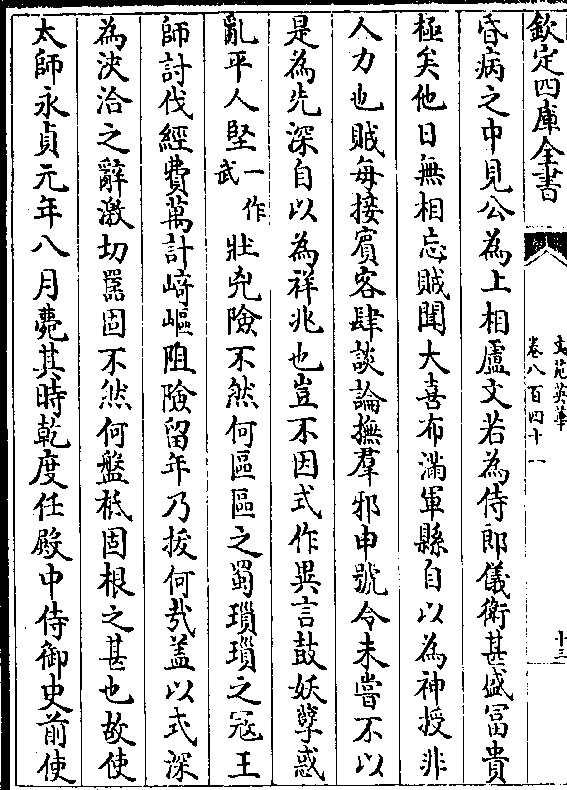 欽定四庫全書
文苑英華
卷八百四十一
十三
昏病之中見公為上相盧文若為侍郎儀衛甚盛冨貴
極矣他日無相忘賊聞大喜布滿軍縣自以為神授非
人力也賊每接賔客肆談論撫羣邪申號令未嘗不以
是為先深自以為祥兆也豈不因式作異言鼓妖孽惑
亂平人堅一作武壯兇險不然何區區之蜀瑣瑣之冦王
師討伐經費萬計﨑嶇阻險留年乃拔何㢤蓋以式深
為浹洽之辭激切羂固不然何盤柢固根之甚也故使
太師永貞元年八月薨其時乾度任殿中侍御史前使